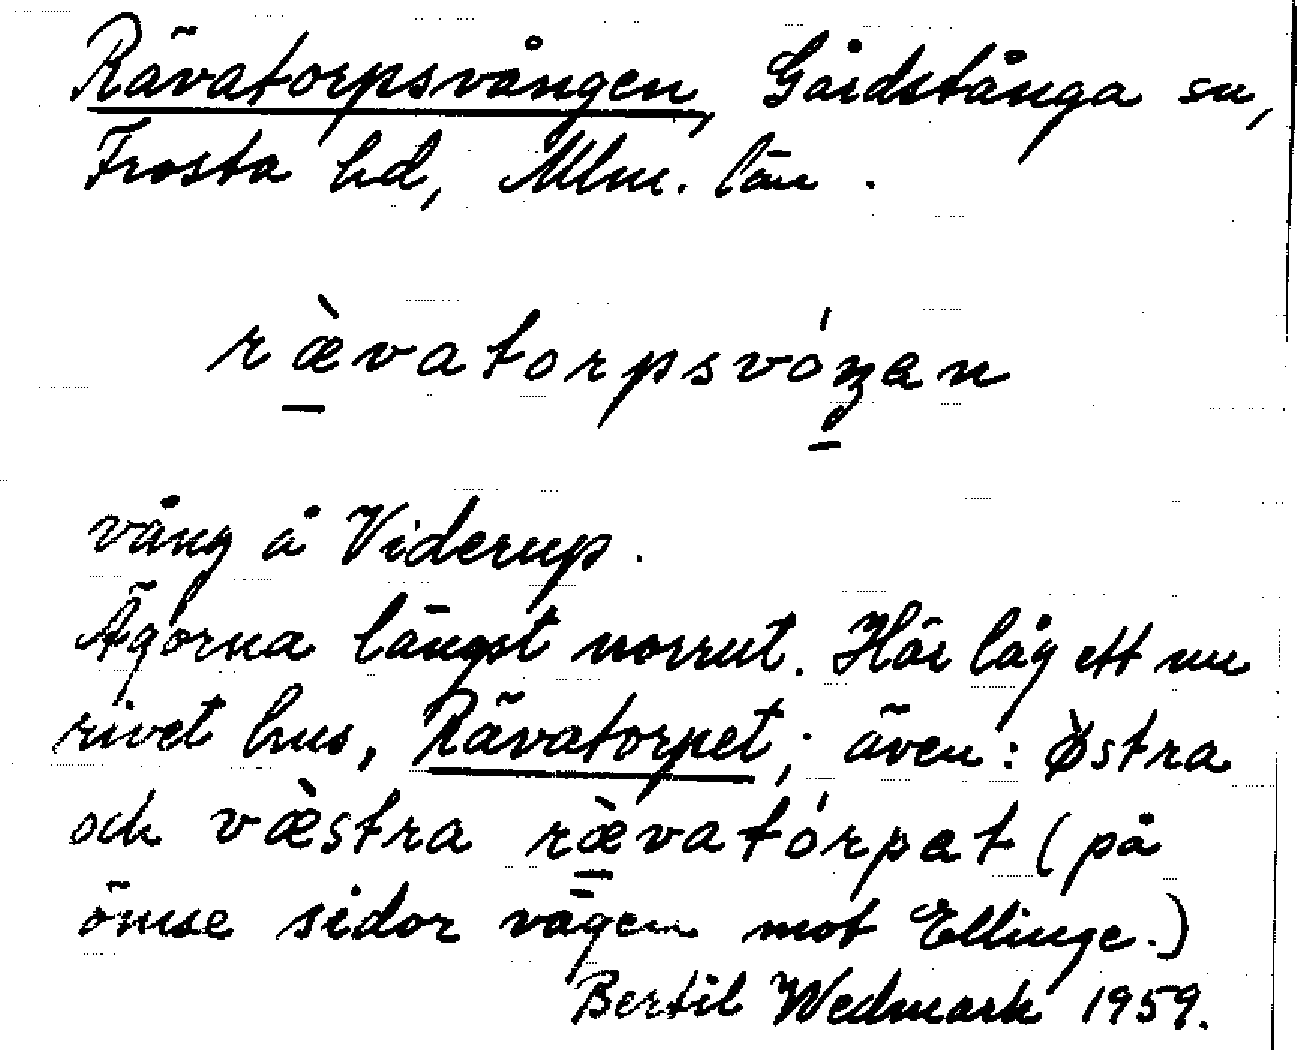 Rävatorpsvången, Gårdstånga sn,
Frosta hd, Mlm. län.
ræ̀vatorpsvóŋən
vång å Viderup.
Ägorna längst norrut. Här låg ett nu
rivet hus, Rävatorpet; även: ø̀stra
och væ̀stra ræ̀vatórpət (på
ömse sidor vägen mot Ellinge.)
Bertil Wedmark 1959.